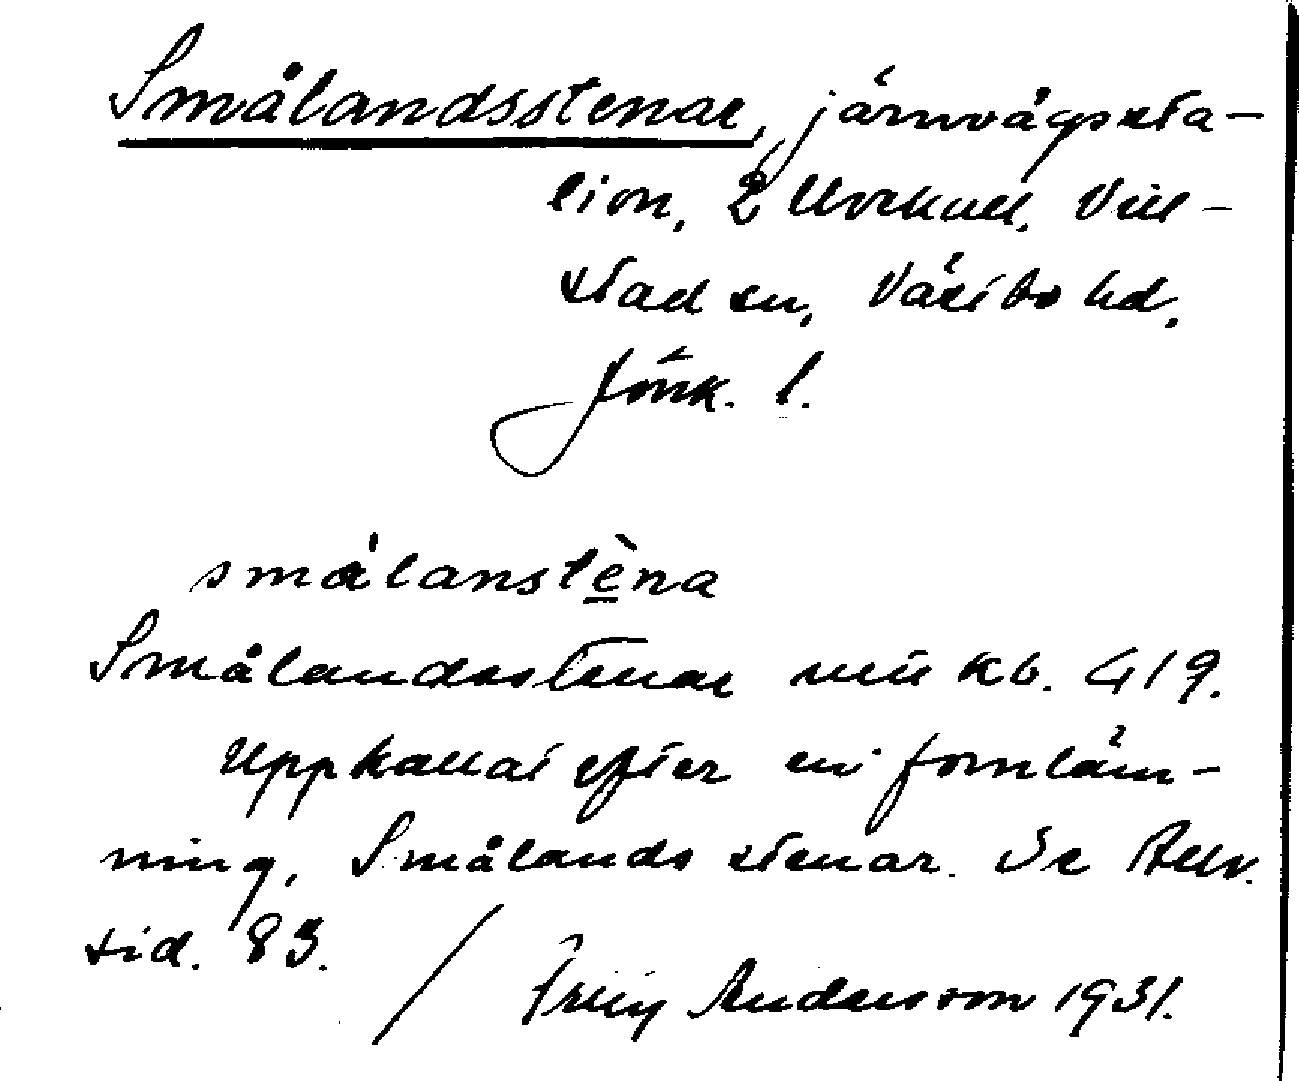 Smålandsstenar, järnvägssta-
tion, 2 Utvkull. Vill-
stad sn, Västbo hd.
Jönk. l.
smålanstèna
Smålandsstenar mtit kb. 419.
Uppkallat efter en fornläm-
ning, Smålands stenar. Se
sid. 83. / Andersson 1931.